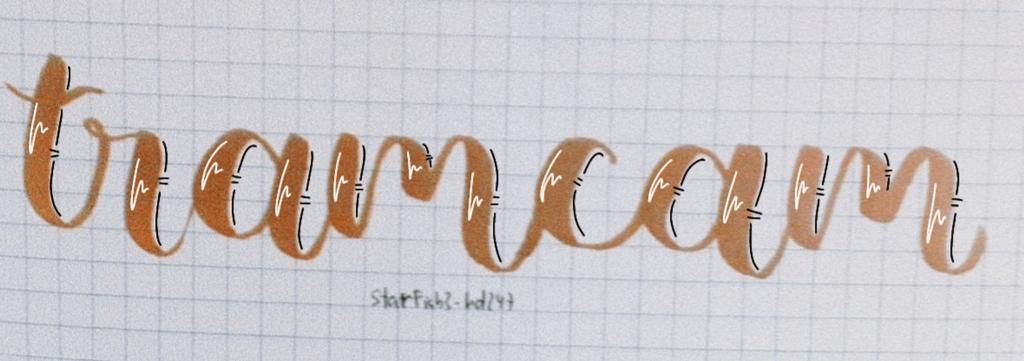 tramcam
starfish2-hd247